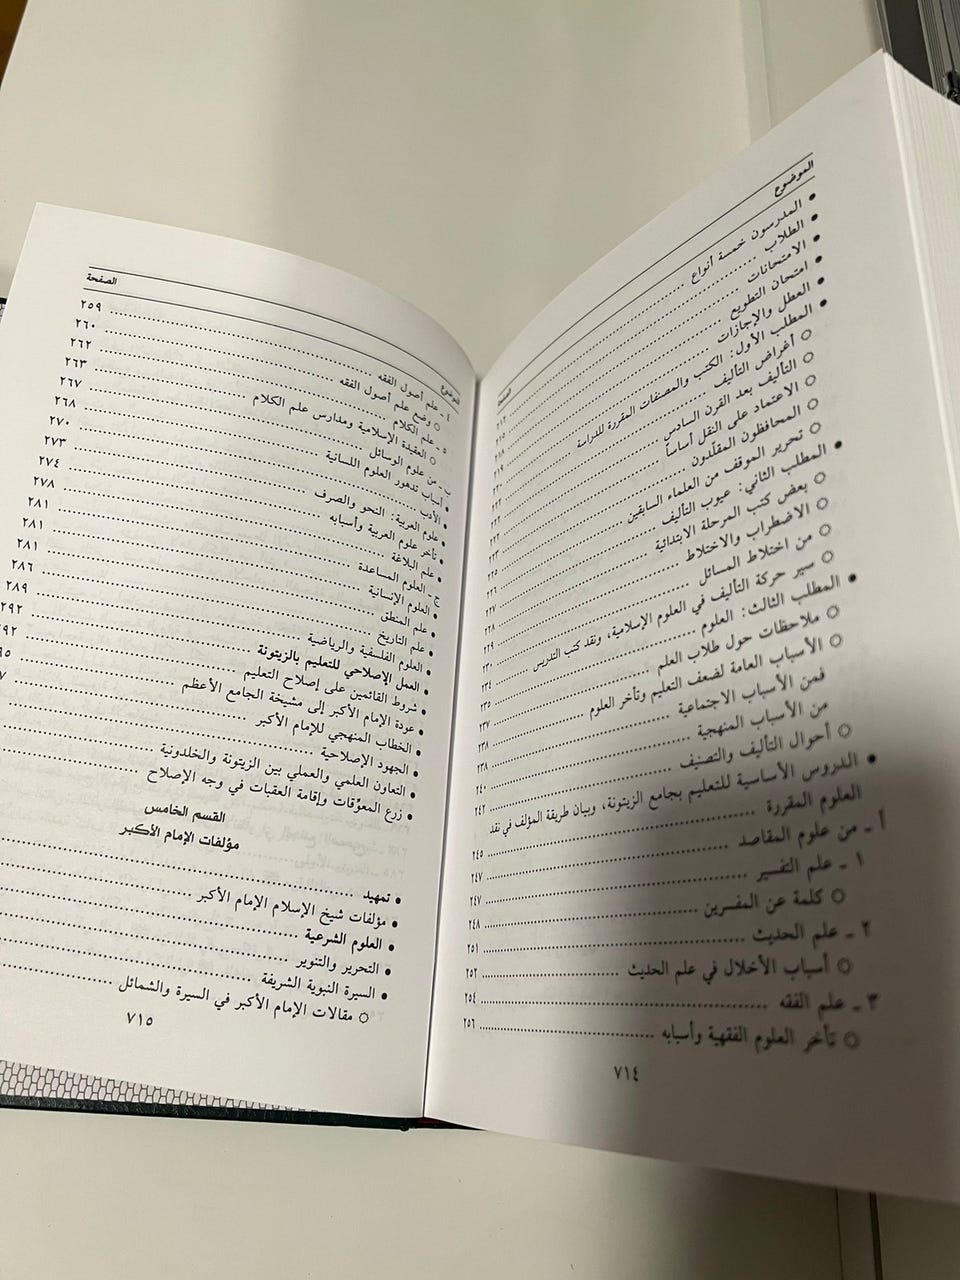 الموضوع الصفحة
• المدرسون خمسة أنواع ٢١٢
• الطلاب ٢١٥
• الامتحانات
• امتحان التطويع ٢١٨
• العطل والإجازات ٢١٩
• المطلب الأول: الكتب والمصنفات المقررة للدراسة
○ أغراض التأليف
○ التأليف بعد القرن السادس
○ الاعتماد على النقل أساساً
○ المحافظون المقلّدون
○ تحرير الموقف من العلماء السابقين ٢٢٣
• المطلب الثاني: عيوب التأليف ٢٢٥
○ بعض كتب المرحلة الابتدائية ٢٢٦
○ الاضطراب والاختلاط ٢٢٧
○ من اختلاط المسائل ٢٢٨
○ سير حركة التأليف في العلوم الإسلامية، ونقد كتب التدريس ٢٢٩
• المطلب الثالث: العلوم ٢٣٠
○ ملاحظات حول طلاب العلم ٢٣٤
○ الأسباب العامة لضعف التعليم وتأخر العلوم ٢٣٥
فمن الأسباب الاجتماعية ٢٣٧
من الأسباب المنهجية ٢٣٨
○ أحوال التأليف والتصنيف ٢٣٨
• الدروس الأساسية للتعليم بجامع الزيتونة، وبيان طريقة المؤلف في نقد
العلوم المقررة
أ ـ من علوم المقاصد ٢٤٥
١ ـ علم التفسير ٢٤٧
○ كلمة عن المفسرين ٢٤٧
٢ ـ علم الحديث ٢٤٨
○ أسباب الأخلال في علم الحديث ٢٥١
٣ ـ علم الفقه ٢٥٢
○ تأخر العلوم الفقهية وأسبابه ٢٥٤
٢٥٦
٧١٤
الموضوع الصفحة
٤ ـ علم أصول الفقه ٢٥٩
○ وضع علم أصول الفقه ٢٦٠
٥ ـ علم الكلام ٢٦٢
○ العقيدة الإسلامية ومدارس علم الكلام ٢٦٣
ب ـ من علوم الوسائل ٢٦٧
• أسباب تدهور العلوم اللسانية ٢٦٨
• الأدب ٢٧٠
• علوم العربية: النحو والصرف ٢٧٣
• تأخر علوم العربية وأسبابه ٢٧٤
• علم البلاغة ٢٧٨
ج ـ العلوم المساعدة ٢٨١
• العلوم الإنسانية ٢٨١
• علم المنطق ٢٨١
• علم التاريخ ٢٨٦
• العلوم الفلسفية والرياضية ٢٨٩
• العمل الإصلاحي للتعليم بالزيتونة ٢٩٢
• شروط القائمين على إصلاح التعليم
• عودة الإمام الأكبر إلى مشيخة الجامع الأعظم
• الخطاب المنهجي للإمام الأكبر
• الجهود الإصلاحية
• التعاون العلمي والعملي بين الزيتونة والخلدونية
• زرع المعوّقات وإقامة العقبات في وجه الإصلاح
القسم الخامس
مؤلفات الإمام الأكبر
• تمهيد
• مؤلفات شيخ الإسلام الإمام الأكبر
• العلوم الشرعية
• التحرير والتنوير
• السيرة النبوية الشريفة
○ مقالات الإمام الأكبر في السيرة والشمائل
٧١٥